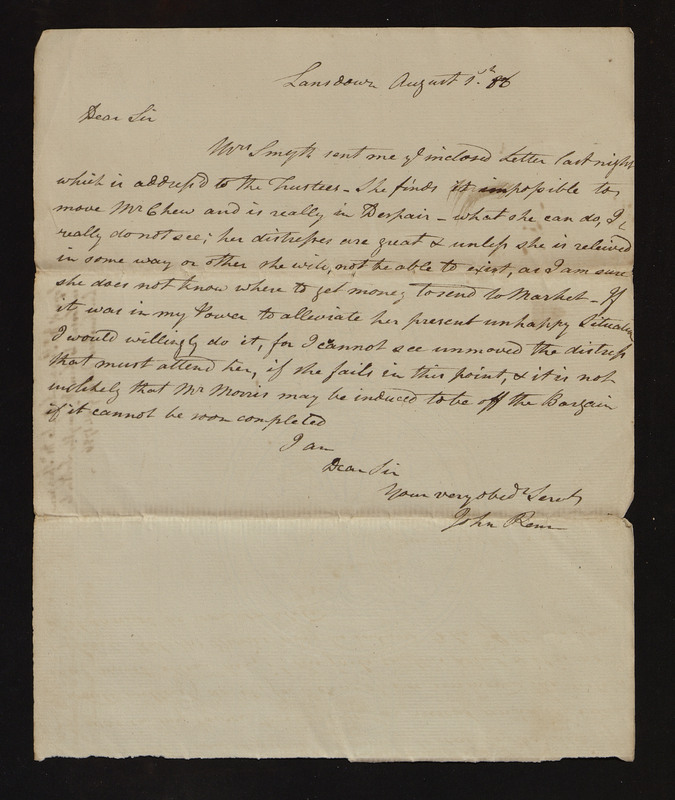 Lansdown August 1st. 86
Dear Sir
Mrs Smyth sent me ye inclosed Letter last night
which is address'd to the Trustees – She finds it impossible to
move Mr Chew and is really in Despair – what she can do, I
really do not see; her distresses are great & unless she is releived
in some way or other she will, not be able to exist, as I am sure
she does not know where to get money to send to Market – If
it was in my Power to alleviate her present unhappy Situation
I would willingly do it, for I cannot see unmoved the distress
that must attend her, if she fails in this point, & it is not
unlikely that Mr Morris may be induced to be off the Bargain
if it cannot be soon completed
I am
Dear Sir
Your very obedt Servt
John Penn